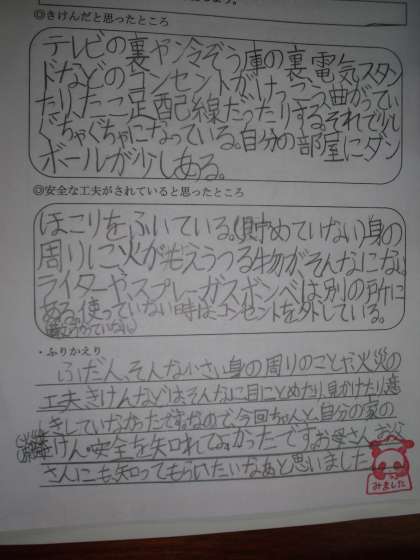 ◎きけんだと思ったところ
テレビの裏や冷ぞう庫の裏、電気スタン
ドなどのコンセントがけっこう曲がってい
たり、たこ足配線だったりする。それで少し
ぐちゃぐちゃになっている。自分の部屋に、ダン
ボールが少しある。
◎安全な工夫がされていると思ったところ
ほこりをふいている。(貯めていない)身の
周りに火がもえうつる物がそんなにない。
ライターや、スプレーガスボンベは、別の所に
ある。使っていない時は、コンセントを外している。
・ふりかえり
ふだん、そんな小さい身の周りのことや、火災の
工夫きけんなどはそんなに目にとめたり、見かけたり
きしていなかったです。なので、今回ちゃんと、自分の家の
きけん・安全を知れてよかったです。お母さん、お父
さんにも知ってもらいたいなあと思いました。
みました